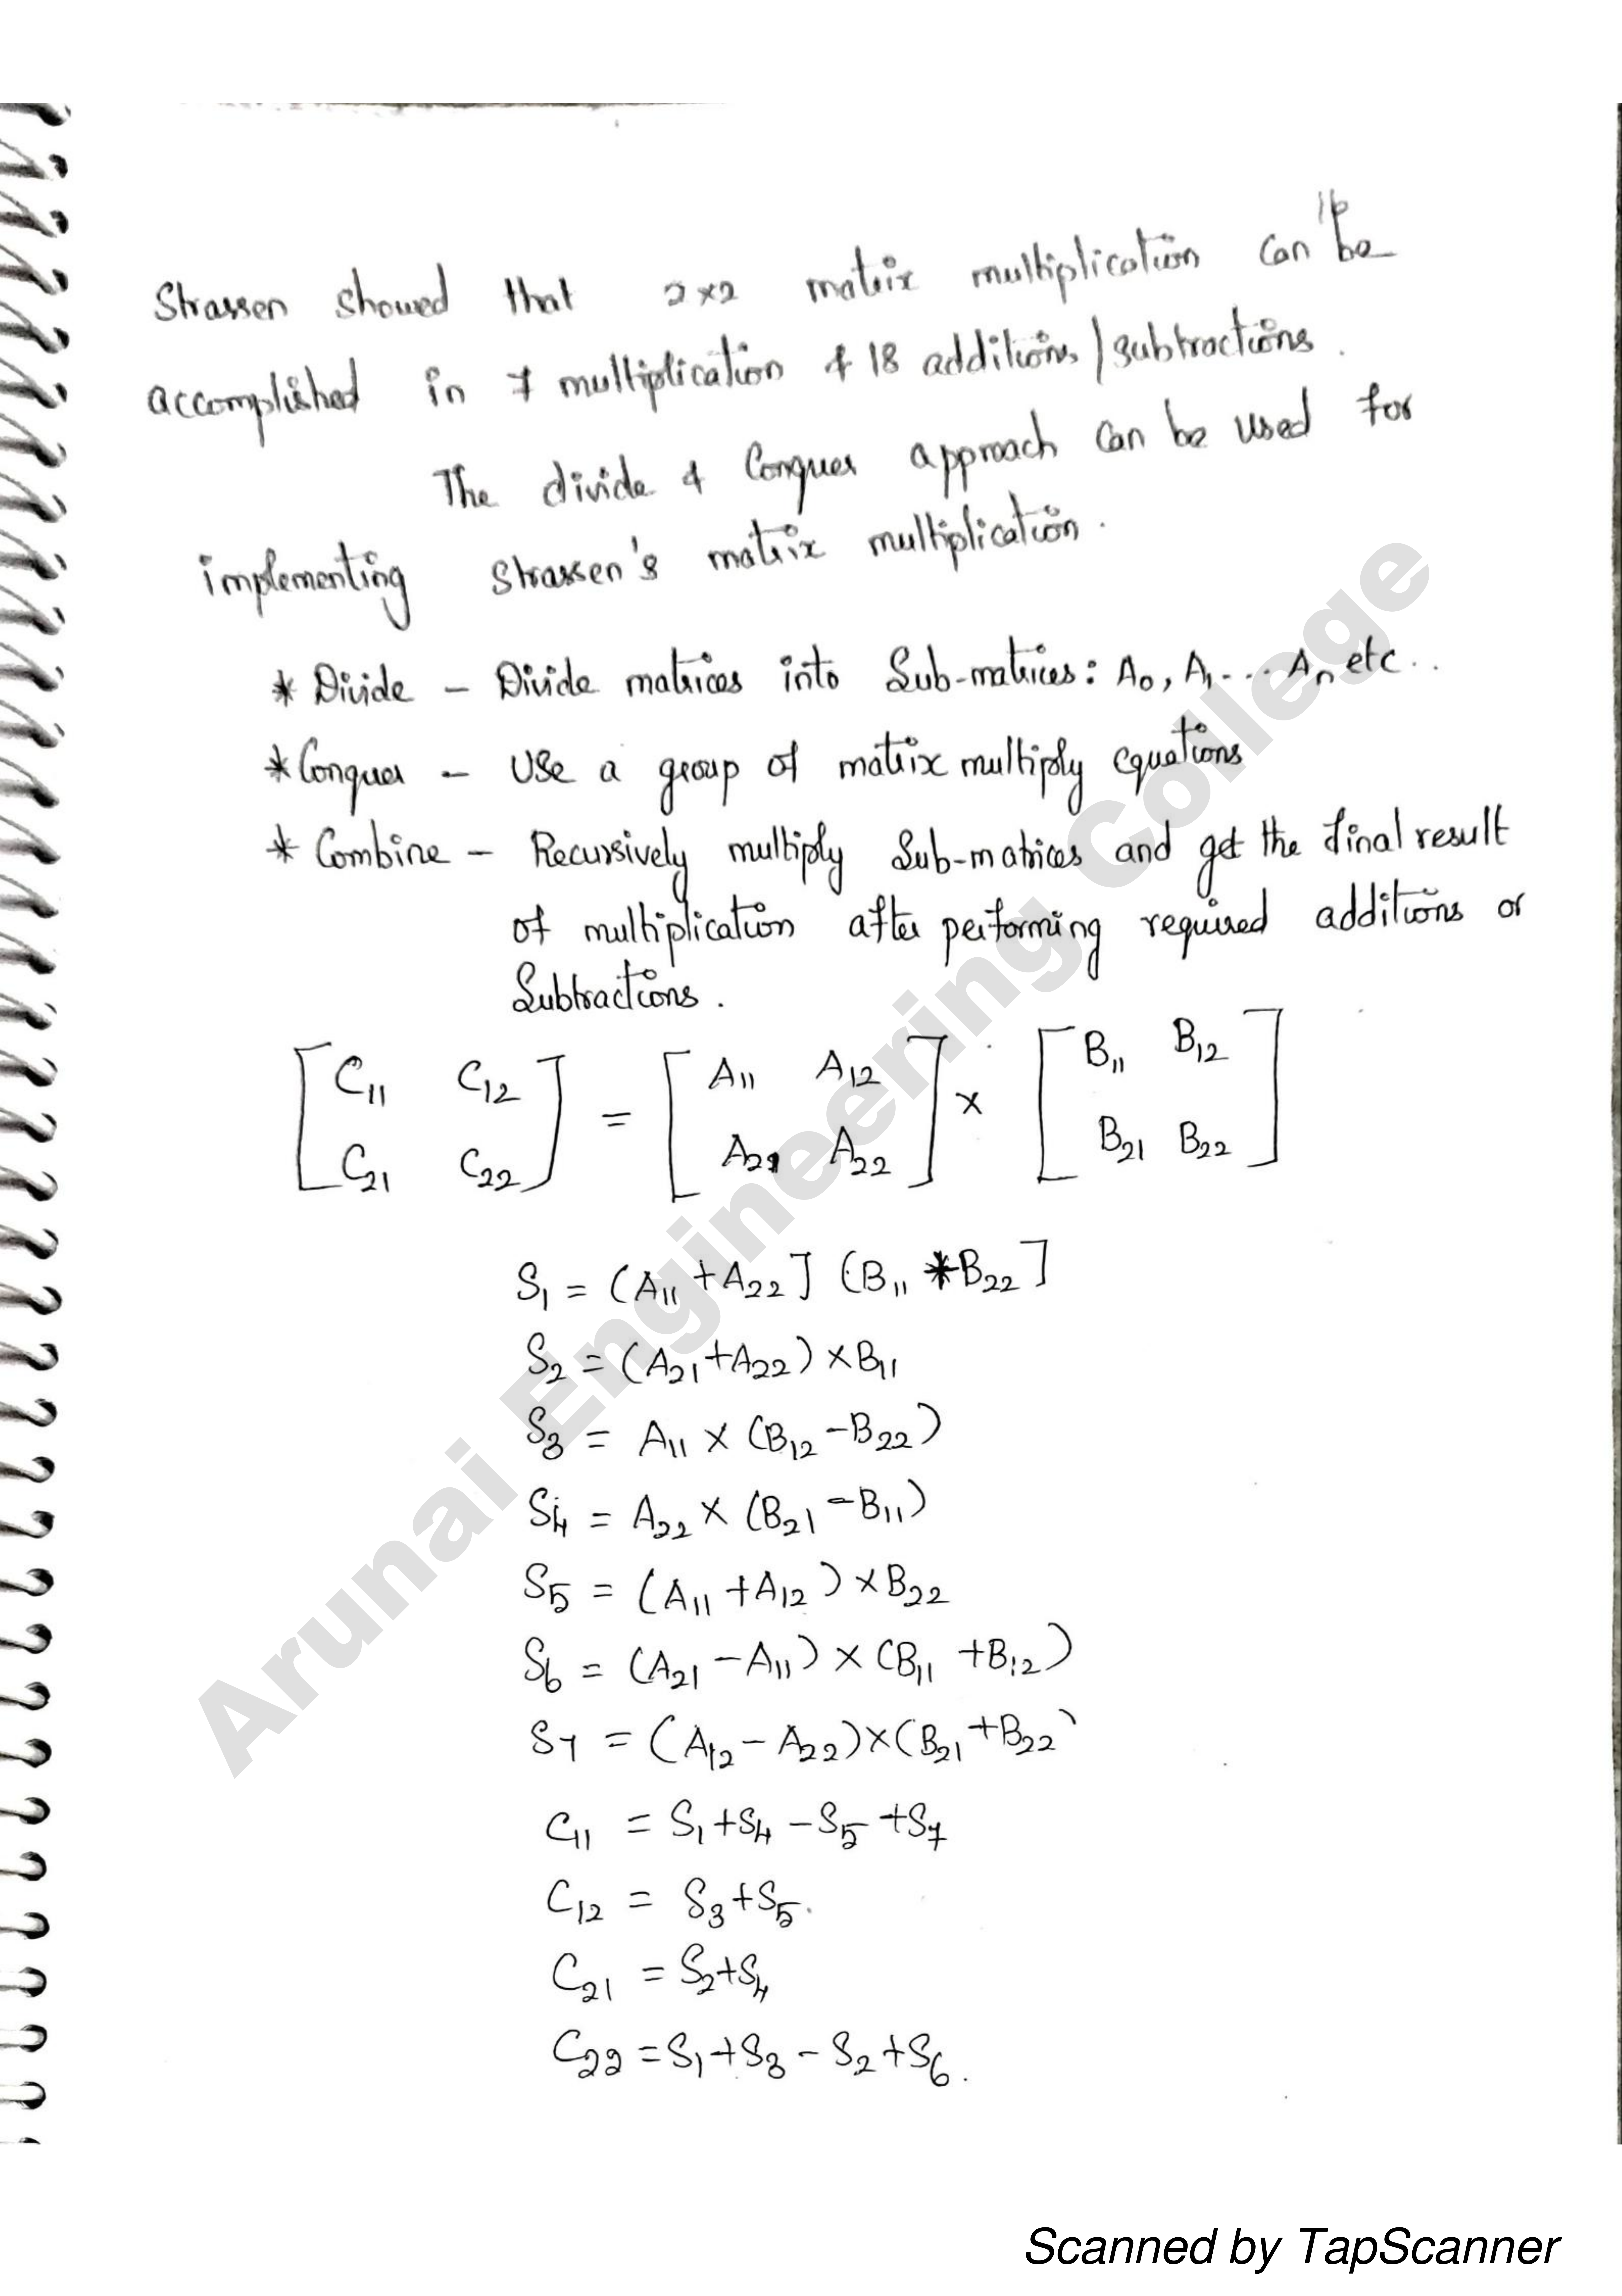 16
Strassen showed that 2×2 matrix multiplication can be
accomplished in 7 multiplication & 18 additions/subtractions.
The divide & Conquer approach can be used for
implementing Strassen's matrix multiplication.
* Divide – Divide matrices into Sub-matrices: A₀, A₁... Aₙ etc..
* Conquer – Use a group of matrix multiply equations
* Combine – Recursively multiply Sub-matrices and get the final result
of multiplication after performing required additions or
Subtractions.
[C₁₁ C₁₂ = [A₁₁ A₁₂] × [B₁₁ B₁₂]
C₂₁ C₂₂] A₂₁ A₂₂ B₂₁ B₂₂
S₁ = (A₁₁ + A₂₂] (B₁₁ *B₂₂]
S₂ = (A₂₁+A₂₂) ×B₁₁
S₃ = A₁₁ × (B₁₂ –B₂₂)
S₄ = A₂₂ × (B₂₁ –B₁₁)
S₅ = (A₁₁ +A₁₂) ×B₂₂
S₆ = (A₂₁ –A₁₁) × (B₁₁ +B₁₂)
S₇ = (A₁₂ – A₂₂)×(B₂₁+B₂₂)
C₁₁ = S₁+S₄ –S₅ +S₇
C₁₂ = S₃+S₅.
C₂₁ = S₂+S₄
C₂₂ =S₁+S₃ – S₂+S₆.
Arunai Engineering College
Scanned by TapScanner